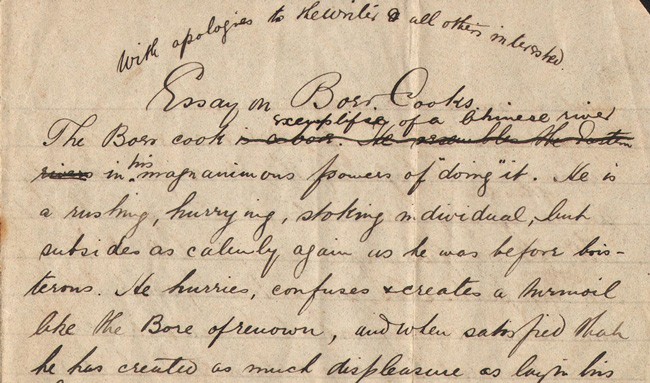 With apologies to the writer & all others interested.
Essay on Boer Cooks.
exemplifies of a Chinese river
The Boer cook is a bore. He resembles the Eastern
rivers in his magnanimous powers of "doing" it. He is
a rushing, hurrying, stoking individual, but
subsides as calmly again as he was before bois-
terous. He hurries, confuses & creates a turmoil
like the Bore of renown, and when satisfied that
he has created as much displeasure as lay in his